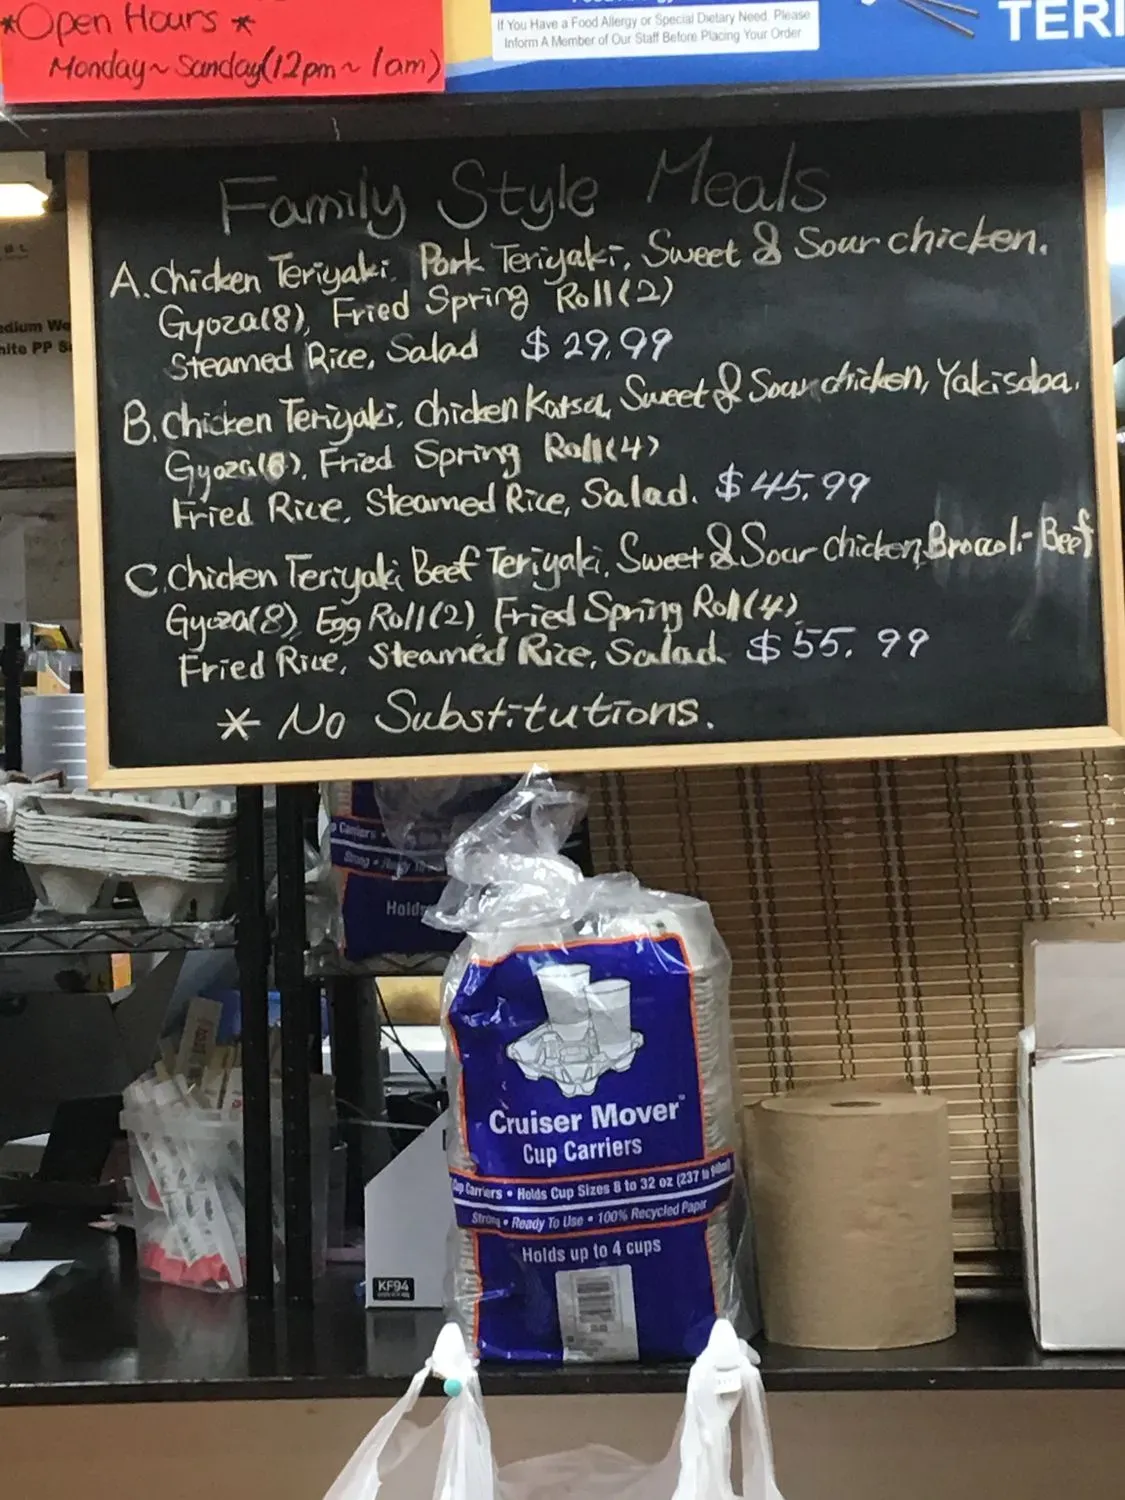 *Open Hours*
Monday~Sunday(12pm~1am)
If You Have a Food Allergy or Special Dietary Need, Please
Inform A Member of Our Staff Before Placing Your Order
TERI
Family Style Meals
A. Chicken Teriyaki. Pork Teriyaki, Sweet & Sour chicken.
Gyoza(8), Fried Spring Roll(2)
Steamed Rice, Salad $29.99
B. Chicken Teriyaki, Chicken Katsu, Sweet & Sour chicken, Yakisoba.
Gyoza(8), Fried Spring Roll(4)
Fried Rice, Steamed Rice, Salad. $45.99
C. Chicken Teriyaki, Beef Teriyaki, Sweet & Sour chicken, Broccoli-Beef
Gyoza(8), Egg Roll(2) Fried Spring Roll(4),
Fried Rice, Steamed Rice, Salad. $55.99
* No Substitutions.
edium
hite PP
p Carriers
Strong • Ready To
Holds
Cruiser Mover™
Cup Carriers
Cup Carriers • Holds Cup Sizes 8 to 32 oz (237 to
Strong • Ready To Use • 100% Recycled Paper
Holds up to 4 cups
KF94